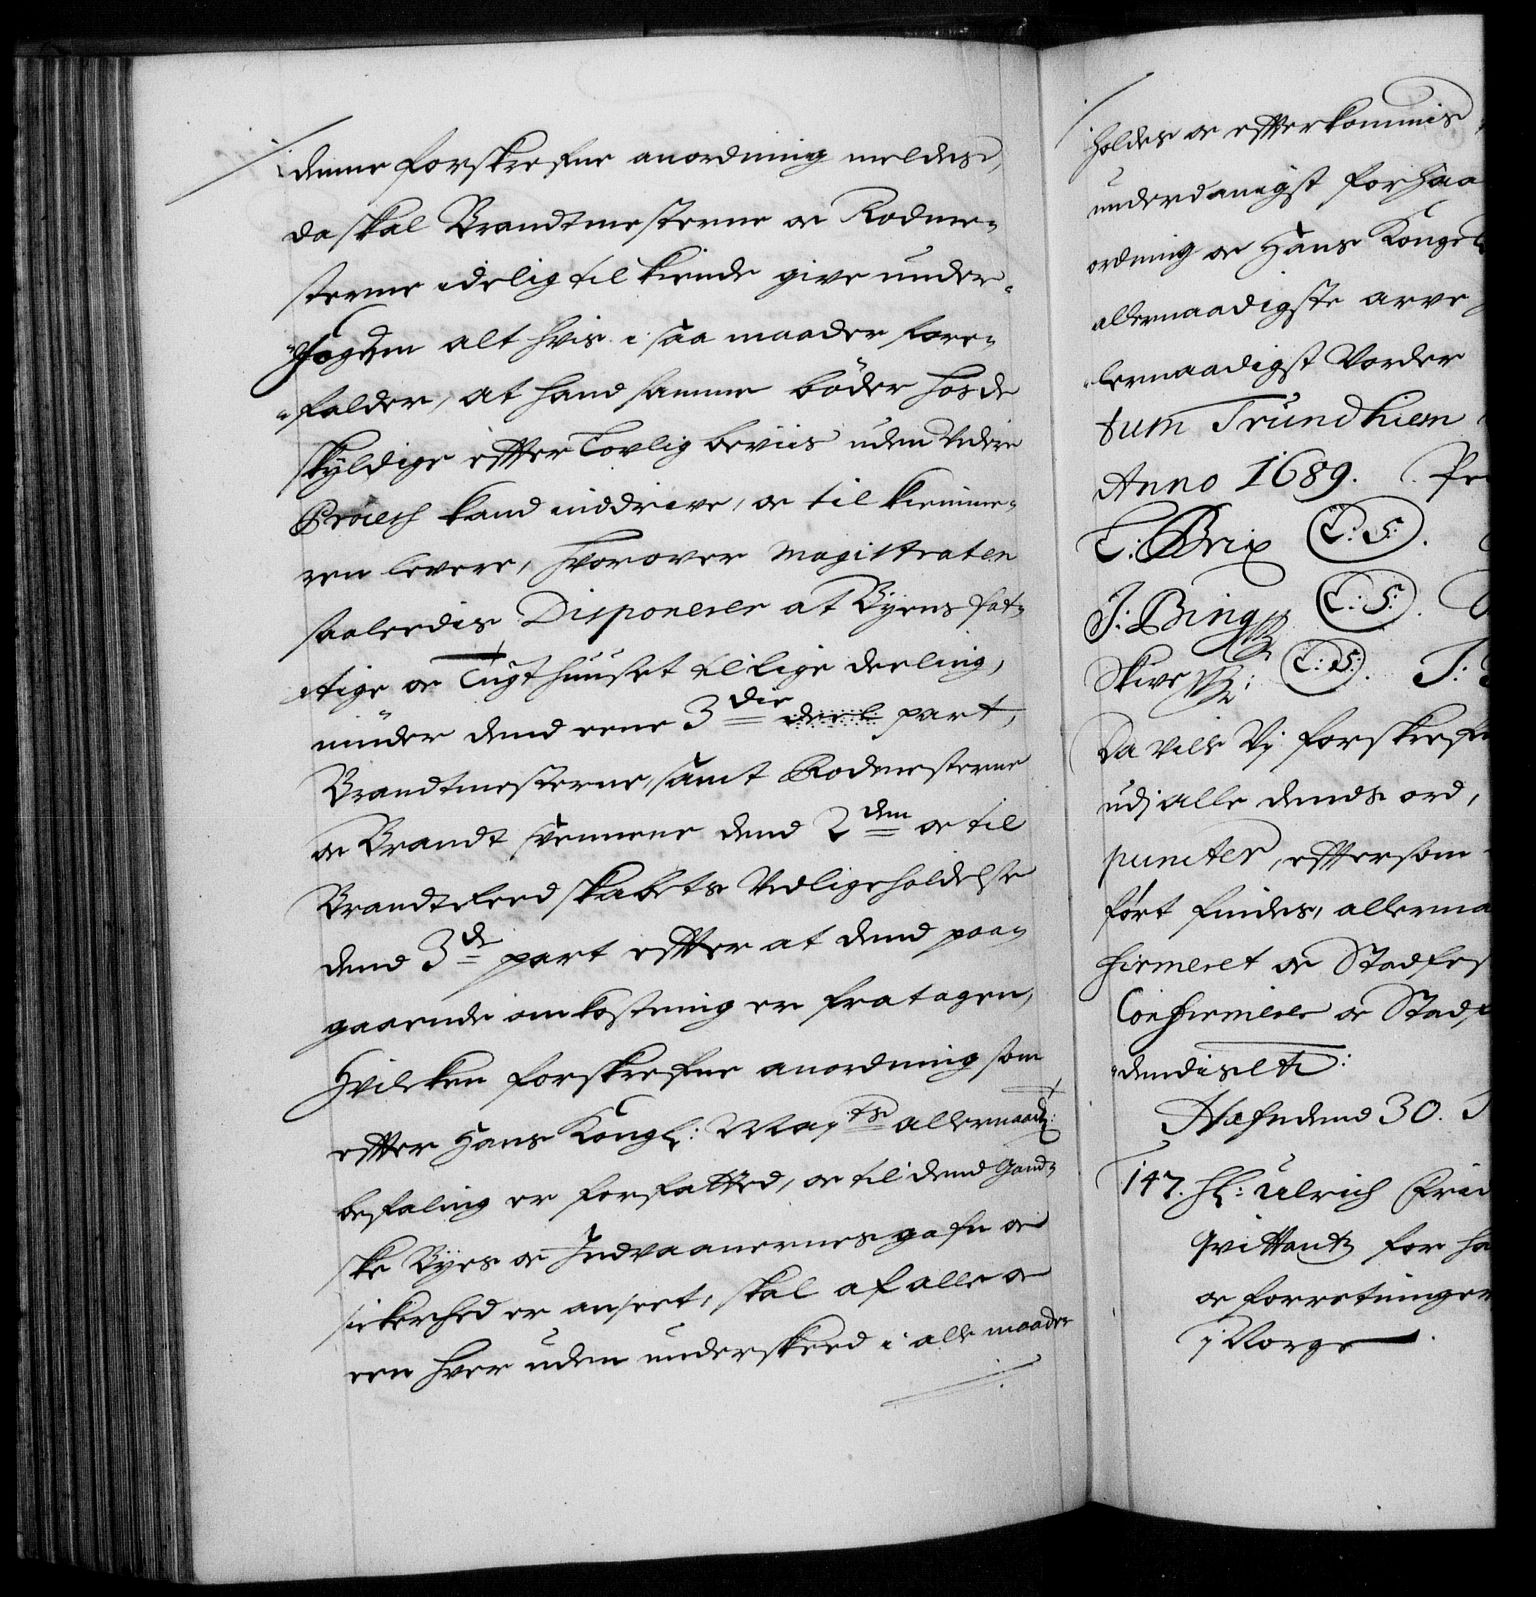 denne forskrefne anordning meldes,
da skal Brandtmesterne oc Rodme-
sterne idelig til kiende give under-
fogden alt hvis i saa maader fore-
falder, at hand samme bøder hos de
skyldige effter Lovlig beviis uden videre
Process kand inddrive, oc til kiemme-
ren levere, hvorover Magistraten
saaledis Disponerer at Byens fat-
tige oc Tugthuuset til lige deeling,
niuder dend eene 3die deel part,
Brandtmesterne, samt Rodmesterne
oc Brandt svennene dend 2den oc til
Brandtreedskabets Vedligeholdelse
dend 3de part effter at dend paa-
gaaende omkostning er fratagen,
Hvilcken forskrefne anordning som
effter Hans Kongl: May.ts allernaad:
befaling er forfatted, oc til dend gand-
ske Byes oc Indvaanernes gafn oc
sickerhed er anseet, skal af alle oc
een hver uden underskeed i alle maader
holdes oc effterkommis
underdanigst forhaa
ordning oc Hans Kongel
allernaadigste arve
lernaadigst Vorder
tum Trundhiem
Anno 1689. Pe
C: Brix L: S:
J: Bing L: S:
Skive L: S: J:
Da Ville Vj forskrefn
udj alle dends ord,
puncter, efftersom
ført findes, allerna
firmeret oc Stadfes
Confirmerer oc Stadf
dendis etc:
Hafn dend 30.
147. Hr: Ulrich Frid
Qvittantz for ha
oc forretninger
j Norge.